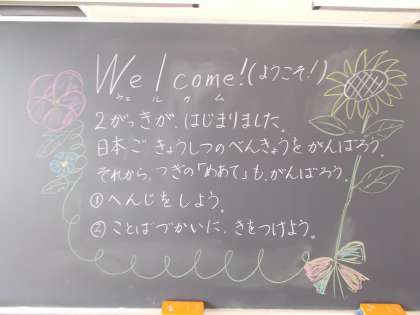 Welcome!(ようこそ!)
ウェルカム
2がっきが、はじまりました。
日本ごきょうしつのべんきょうをがんばろう。
それから、つぎの「めあて」も、がんばろう。
①へんじをしよう。
②ことばづかいに、きをつけよう。